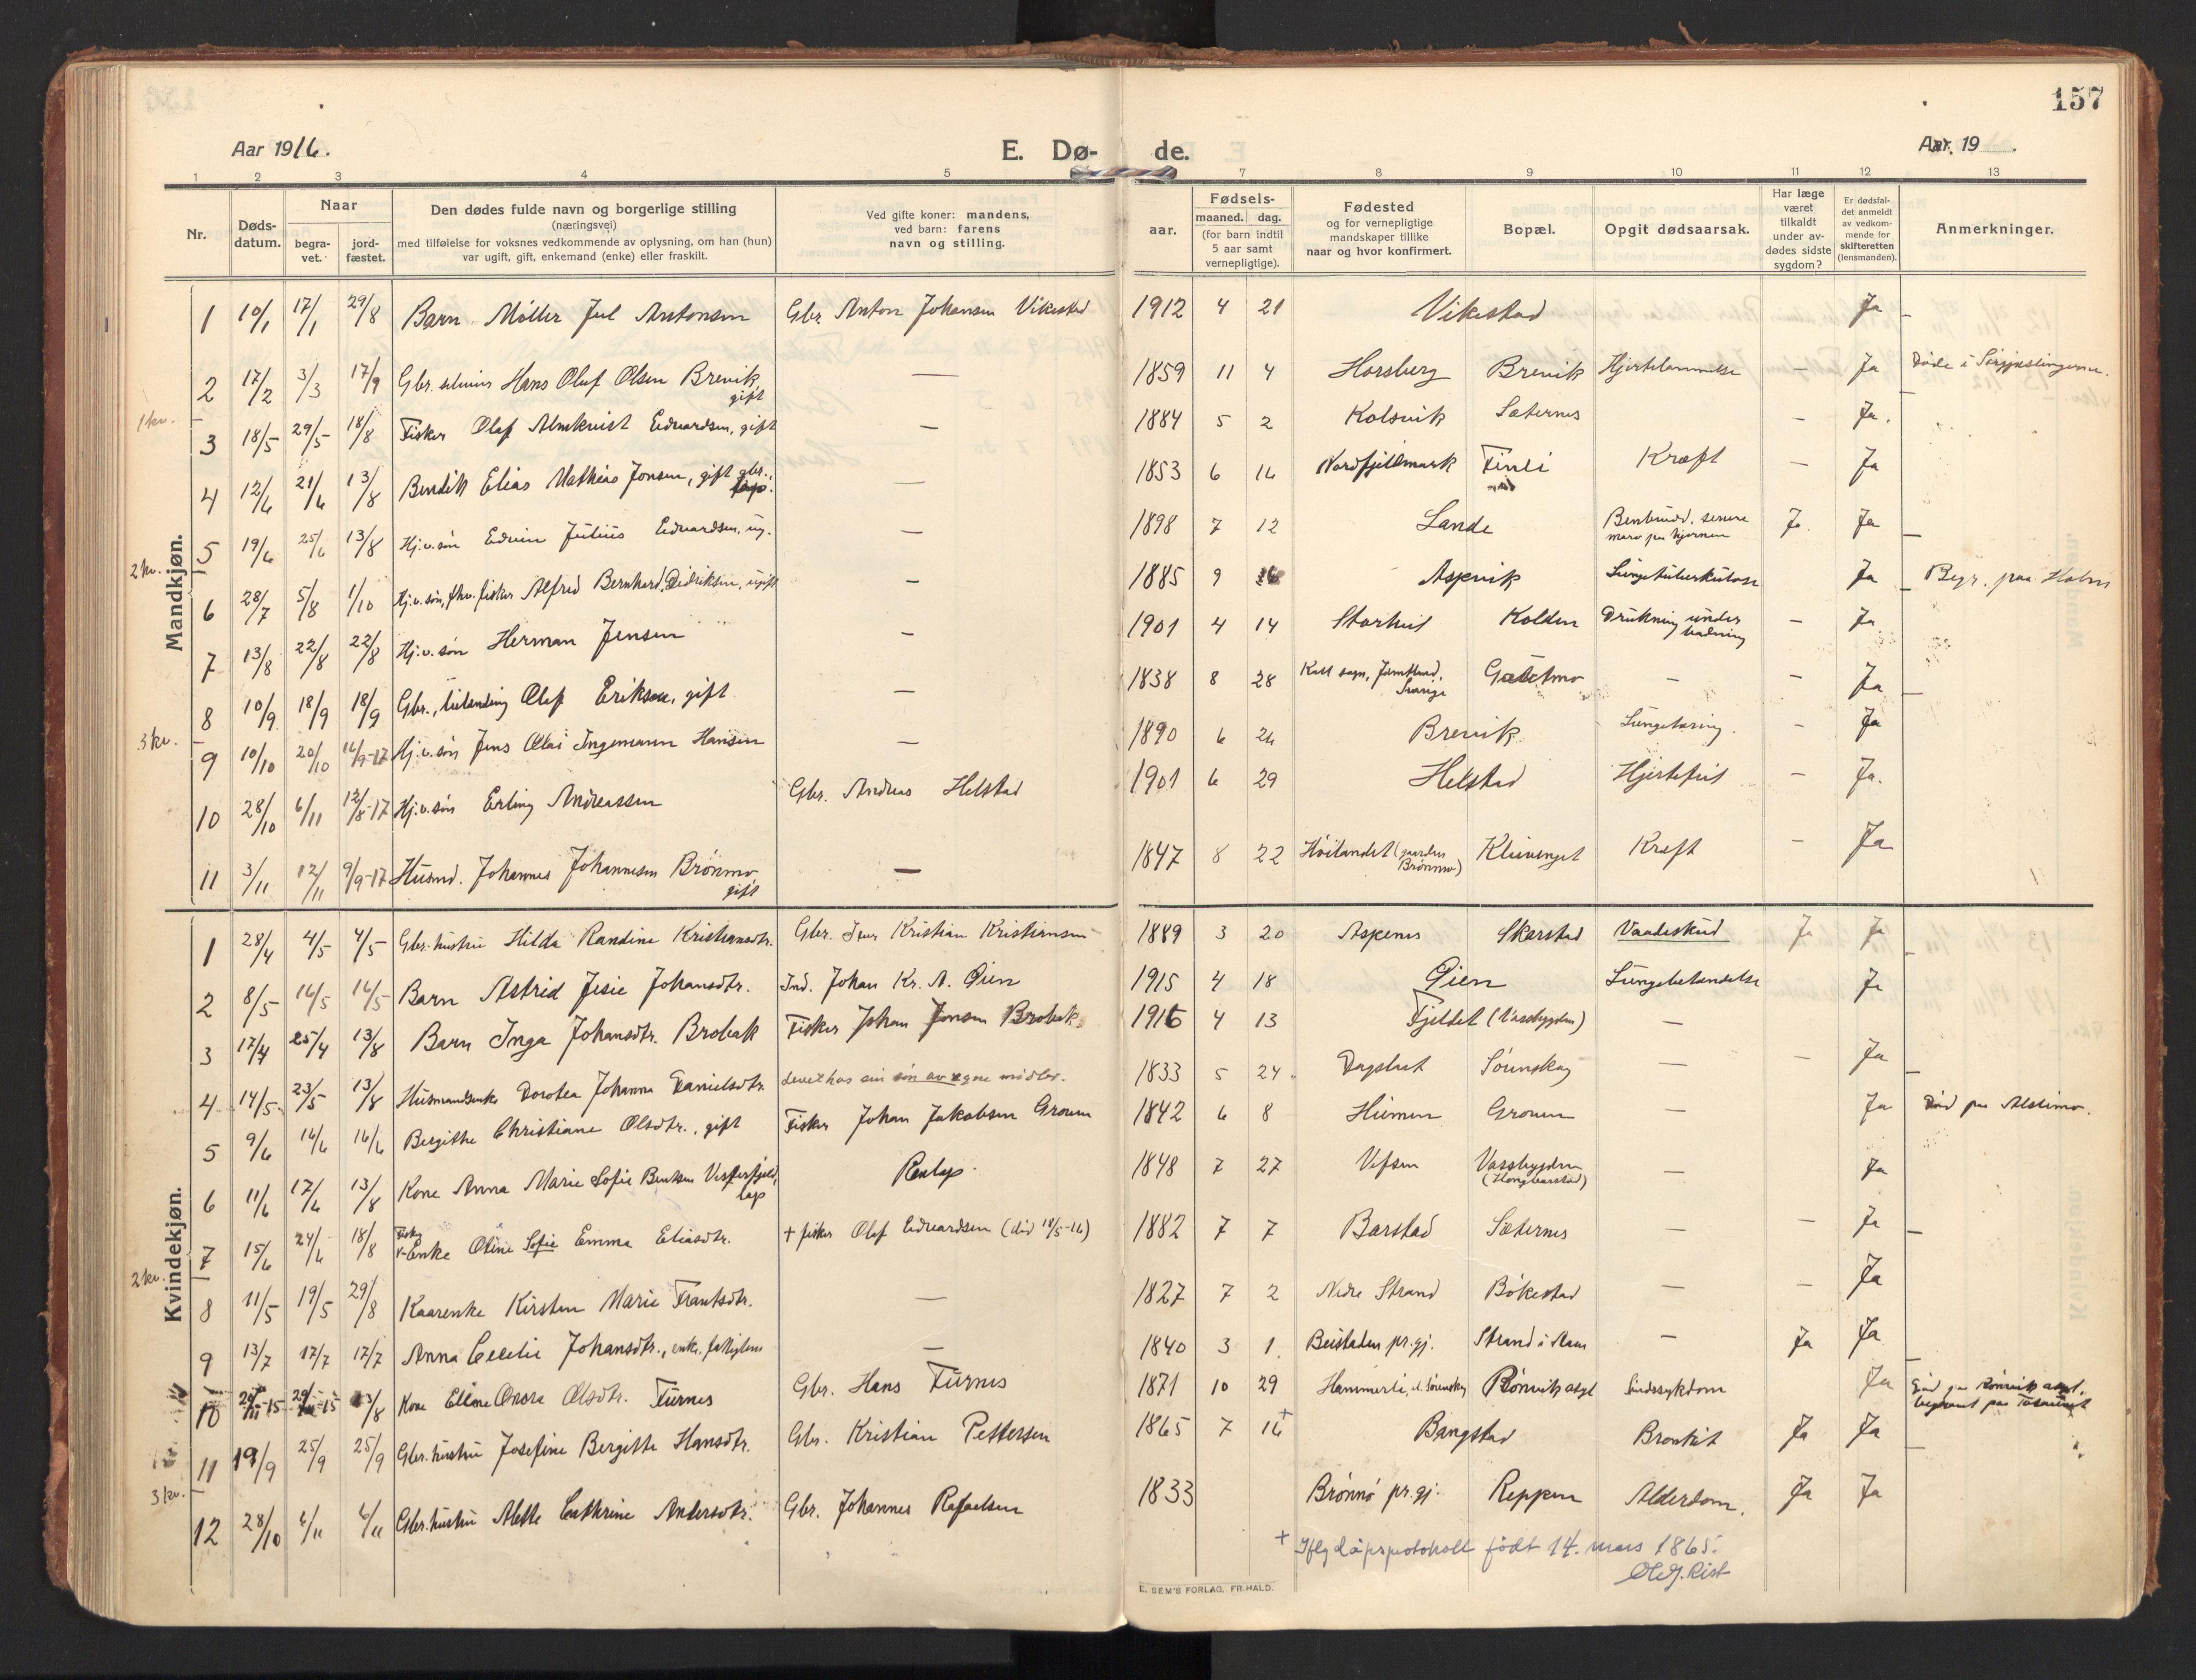 157
Aar 1916.
E. Dø- de.
Aar. 19 .
1 2 3 4 5 7 8 9 10 11 12 13
Nr.
Døds-datum.
Naar
begra-vet.
jord-fæstet.
Den dødes fulde navn og borgerlige stilling
(næringsvei)
med tilføielse for voksnes vedkommende av oplysning, om han (hun)
var ugift, gift, enkemand (enke) eller fraskilt.
Ved gifte koner: mandens,
ved barn: farens
navn og stilling.
Fødsels-
aar.
maaned. dag.
(for barn indtil
5 aar samt
vernepligtige).
Fødested
og for vernepligtige
mandskaper tillike
naar og hvor konfirmert.
Bopæl.
Opgit dødsaarsak.
Har læge
været
tilkaldt
under av-
dødes sidste
sygdom?
Er dødsfal-
det anmeldt
av vedkom-
mende for
skifteretten
(lensmanden).
Anmerkninger.
Mandkjøn.
1 10/1 17/1 29/8 Barn Møller Jul Antonsen Gbr. Anton Johansen Vikestad 1912 4 21 Vikestad Ja
2 17/2 3/3 17/9 Gbr. Hans Oluf Olsen Brevik, gift — 1859 11 4 Horsberg Brevik Hjertelammelse — Ja Døde i
1 kv.
3 18/5 29/5 18/8 Fisker Olaf Almkvist Edvardsen, gift — 1884 5 2 Kolsvik Sæternes — Ja.
4 12/6 21/6 13/8 Bendik Elias Mathias Jonsen, gift gbr., — 1853 6 16 Nordfjellmark Finli Kræft — Ja
5 19/6 25/6 13/8 Hj.v.søn Edvin Julius Edvardsen, ug. — 1898 7 12 Lande Benbrudd, senere Ja. Ja
2 kv.
6 28/7 5/8 1/10 Hj.v.søn, fhv. fisker Alfred Bernhard Didriksen, ugift — 1885 9 Aspvik Lungetuberkulose Ja Begr. paa Holm
7 13/8 22/8 22/8 Hj.v.søn Herman Jensen — 1901 4 14 Storhus Kolden Drukning under badning — Ja
8 10/9 18/9 18/9 Gbr., Olof Eriksen, gift — 1838 8 28 Kall sogn, Jemtland, Sverige Gaastmo — — Ja
3 kv.
9 10/10 20/10 16/9-17 Hj.v.søn Jens Olai Ingemann Hansen — 1890 6 24 Brevik Lungetæring. — Ja
10 28/10 6/11 12/8-17 Hj.v.søn Erling Andreassen Gbr. Andreas Helstad 1901 6 29 Helstad Hjertefeil — Ja.
11 3/11 12/11 9/9-17 Husmd. Johannes Johannesen Brønmo, gift — 1847 8 22 Høilandet (gaarden Brønmo) Klievenget Kræft — Ja
Kvindekjøn.
1 28/4 4/5 4/5 Gbr. hustru Hilda Randine Kristiansdtr. Gbr. Kristian Kristiansen 1889 3 20 Aspenes Skarstad Vaadeskud Ja Ja
2 8/5 16/5 16/5 Barn Astrid Jisie Johansdtr. Ind. Johan Kr. A. Øien 1915 4 18 Øien Lungebetændelse Ja
3 17/4 25/4 13/8 Barn Inga Johansdtr. Brobak Fisker Johan Jonsen Brobak 1916 4 13 Fjeldet (Vassbygden) —
4 14/5 23/5 13/8 Husmandsenke Dorotea Johanna Danielsdtr. Levet hos sin søn av egne midler. 1833 5 24 Dagslaat Sørenskog — — Ja
5 9/6 16/6 16/6 Bergithe Christiane Olsdtr., gift Fisker Johan Jakobsen Groven 1842 6 8 Groven — Ja Død paa
6 11/6 17/6 13/8 Kone Anna Marie Sofie Bentsen Vesterfjeld, lap Renlap. 1848 7 27 Vefsen Vassbygden — Ja
7 15/6 24/6 18/8 Fisker Enke Oline Sofie Emma Eliasdtr. + fisker Olof Edvardsen (død 18/5-16) 1882 7 7 Barstad Sæternes — Ja
2 kv.
8 11/5 19/5 29/8 Kaarenke Kirsten Marie Frantsdtr. — 1827 7 2 Nedre Strand Bøkestad — — Ja
9 13/7 17/7 17/7 Anna Cecelie Johansdtr., enke, fattiglem — 1840 3 1 Beistaden pr.gj. Strand i Aam — Ja Ja
10 13/8 Kone Eline Onora Olsdtr. Furnes Gbr. Hans Furnes 1871 10 29 Hammerli, Rønvik asyl Sindssykdom Ja Død paa Rønvik asyl,
11 19/9 25/9 25/9 Gbr. hustru Josefine Bergitte Hansdtr. Gbr. Kristian Pettersen 1865 7 16+ Bangstad Bronkit Ja Ja
3 kv.
12 28/10 6/11 6/11 Gbr. hustru Alette Cathrine Andersdtr. Gbr. Johannes Rafaelsen 1833 Brønnø pr.gj. Reppen Alderdom. Ja Ja
+ Iflg dåpsprotokoll født 14. mars 1865.
E. SEM'S FORLAG, FR.HALD.